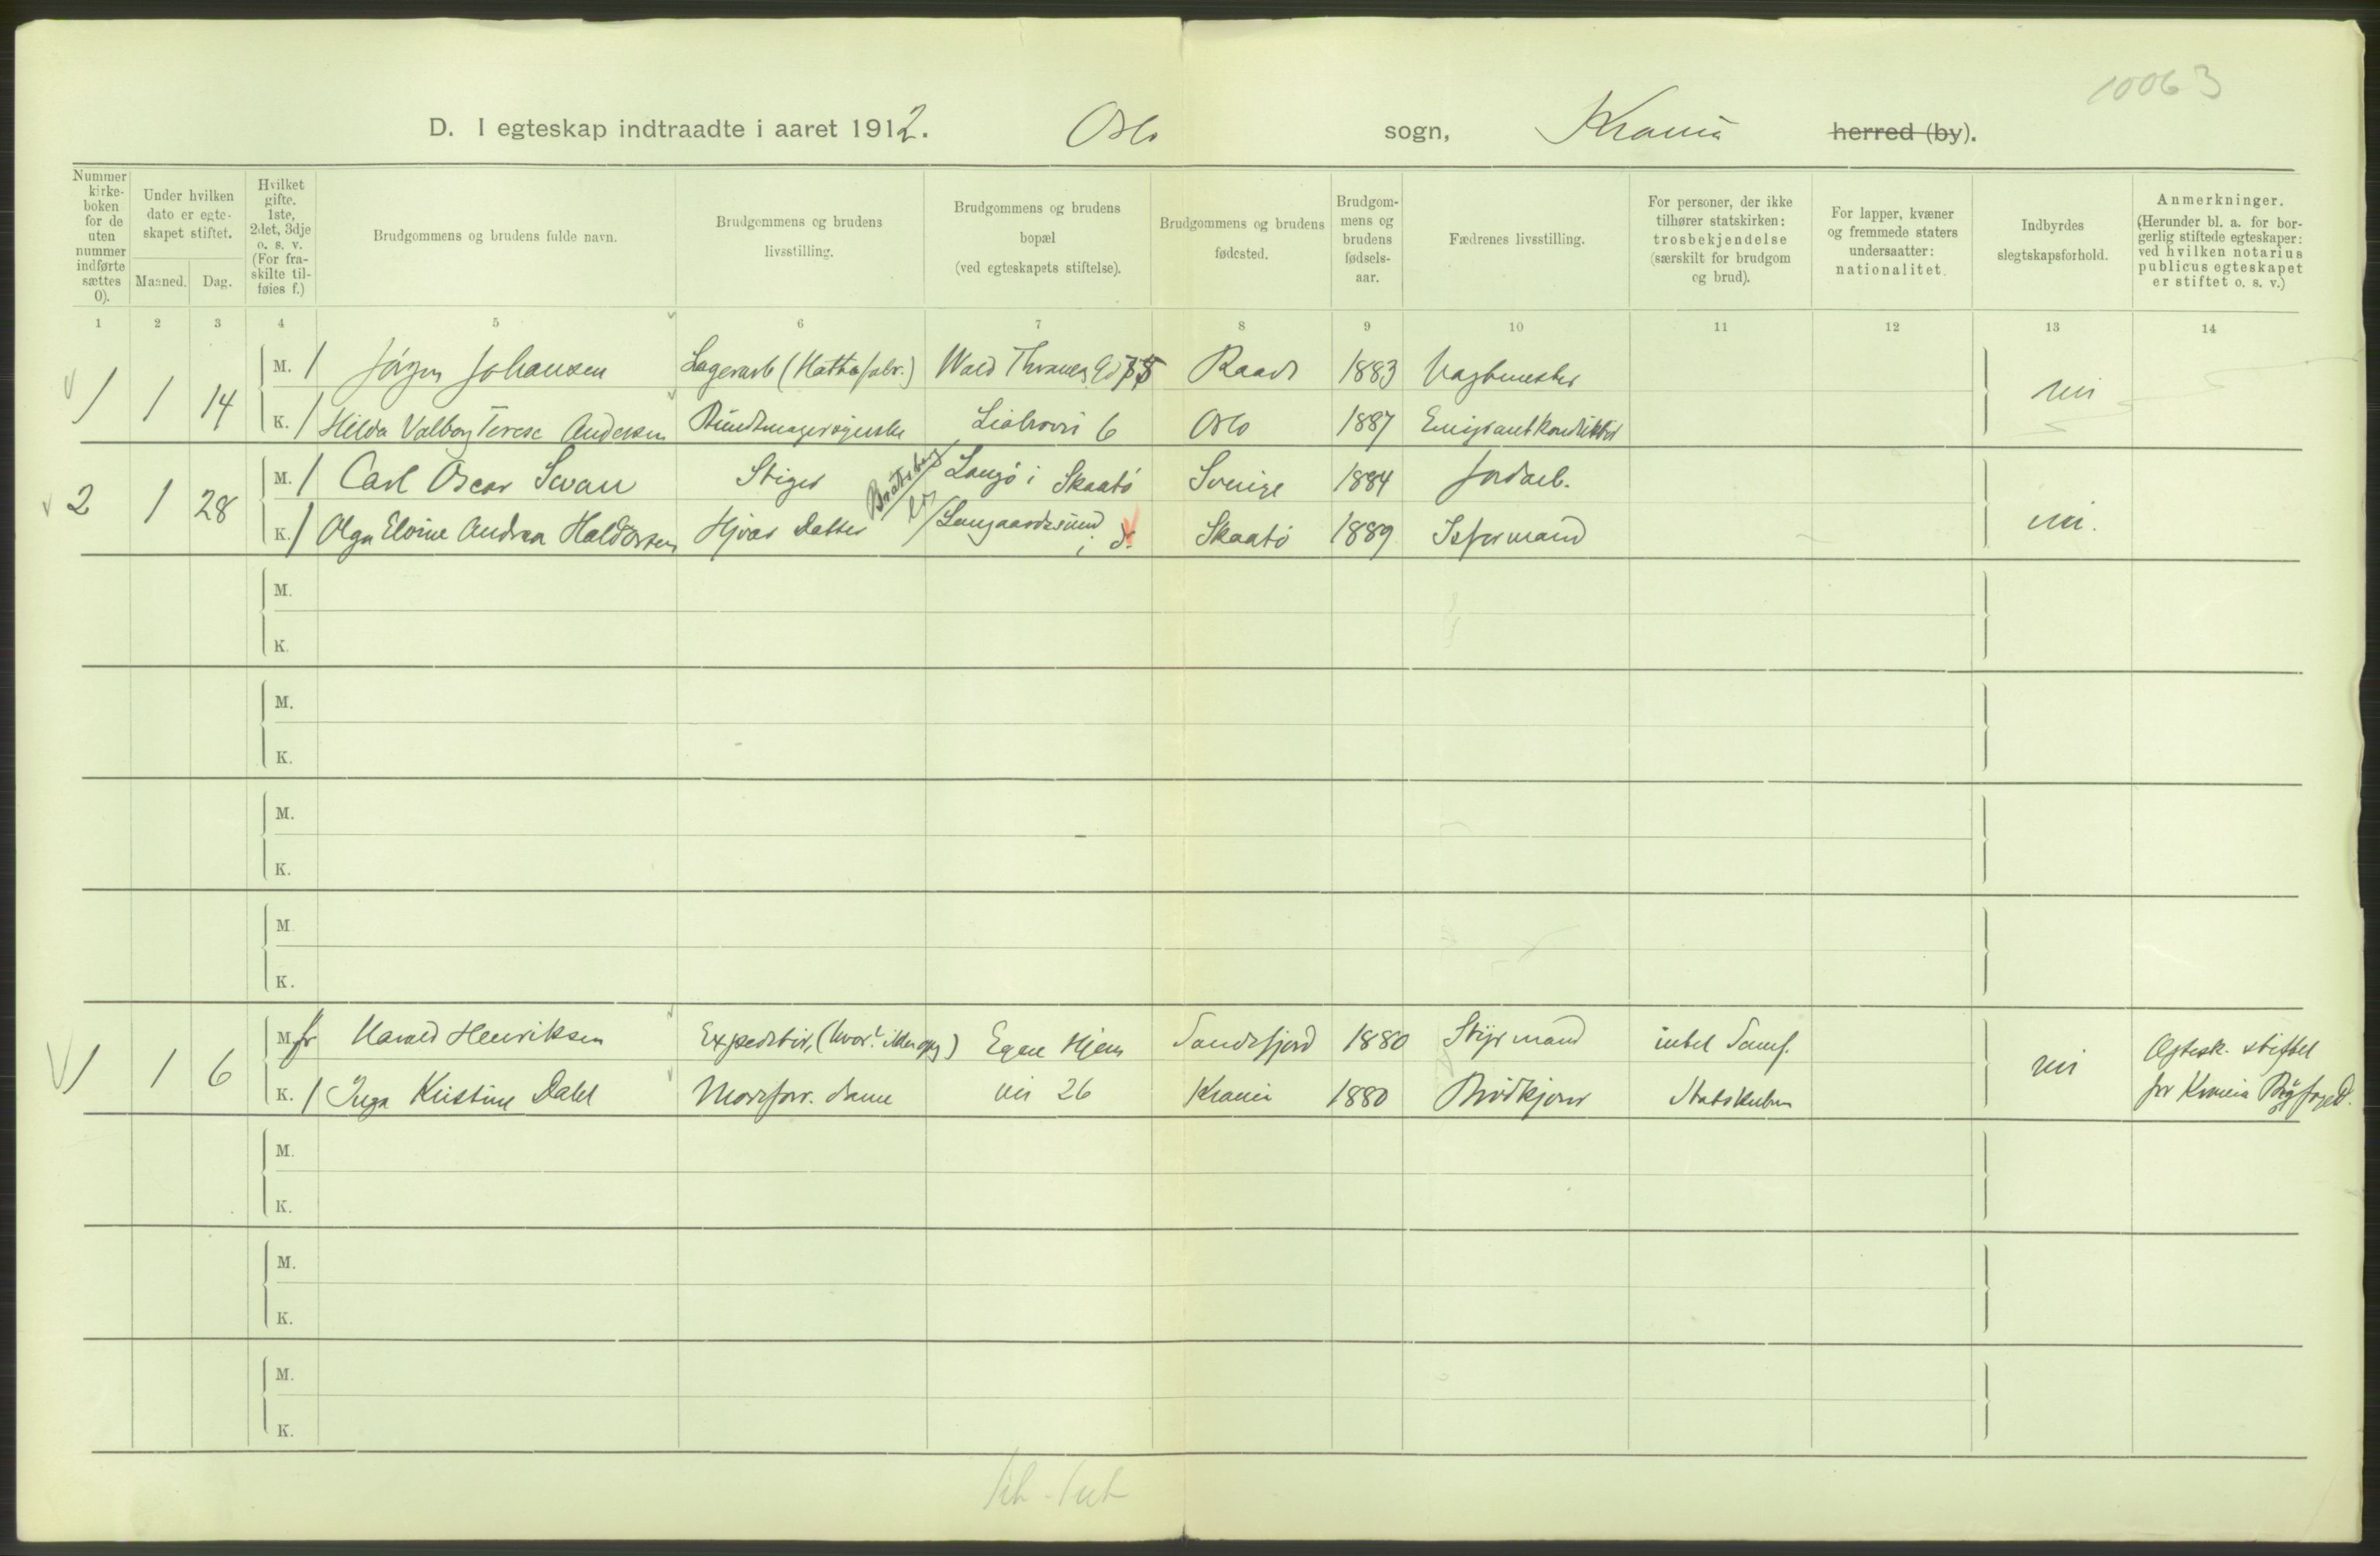 10063
D. I egteskap indtraadte i aaret 1912. Oslo sogn, Krania herred (by).
Nummer kirkeboken for de uten nummer indførte sættes 0).
Under hvilken dato er egteskapet stiftet.
Maaned. Dag.
Hvilket gifte. 1ste, 2det, 3dje o. s. v. (For fraskilte tilføies f.)
Brudgommens og brudens fulde navn.
Brudgommens og brudens livsstilling.
Brudgommens og brudens bopæl (ved egteskapets stiftelse).
Brudgommens og brudens fødested.
Brudgommens og brudens fødselsaar.
Fædrenes livsstilling.
For personer, der ikke tilhører statskirken: trosbekjendelse (særskilt for brudgom og brud).
For lapper, kvæner og fremmede staters undersaatter: nationalitet.
Indbyrdes slegtskapsforhold.
Anmerkninger. (Herunder bl. a. for borgerlig stiftede egteskaper: ved hvilken notarius publicus egteskapet er stiftet o. s. v.)
1 2 3 4 5 6 7 8 9 10 11 12 13 14
1 1 14 M. 1 Jørgen Johansen Lagerarb (Hattefabr.) Wald Thranes Gd Raade 1883 Vagtmester nei
K. 1 Hilda Valborg Terese Andersen Bundtmagersyerske Liabrovei 6 Oslo 1887 Emigrantkonduktør
2 1 28 M. 1 Carl Oscar Svan Stiger Bratsberg Langö i Skaatö Sverige 1884 Jordarb. nei.
K. 1 Olga Elvine Andrea Haldorsen Hjvær Datter Langaardssund i do Skaatö 1889 Isformand
M.
K.
M.
K.
M.
K.
M.
K.
1 1 6 M. fr Harald Henriksen Expeditør, (hvor? ikke opg) Egne Hjem Sandefjord 1880 Styrmand intet Samf. nei Ægtesk. stiftet
K. 1 Inga Kristine Dahl Moreforr. dame vei 26 Krania 1880 Brödkjörer Statskirken for Krania Byfoged.
M.
K.
M.
K.
M.
K.